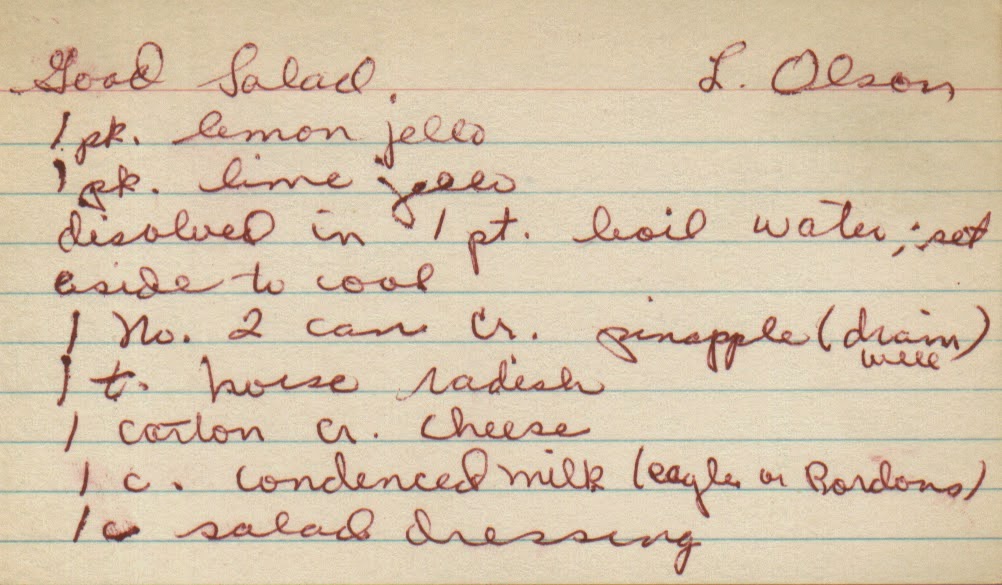 Good Salad. L. Olson
1 pk. lemon jello
1 pk. lime jello
disolved in 1 pt. boil water; set
aside to cool
1 No. 2 can Cr. pinapple (drain)
well
1 t. horse radish
1 carton cr. cheese
1 c. condenced milk (eagle or Bordons)
1 c salad dressing